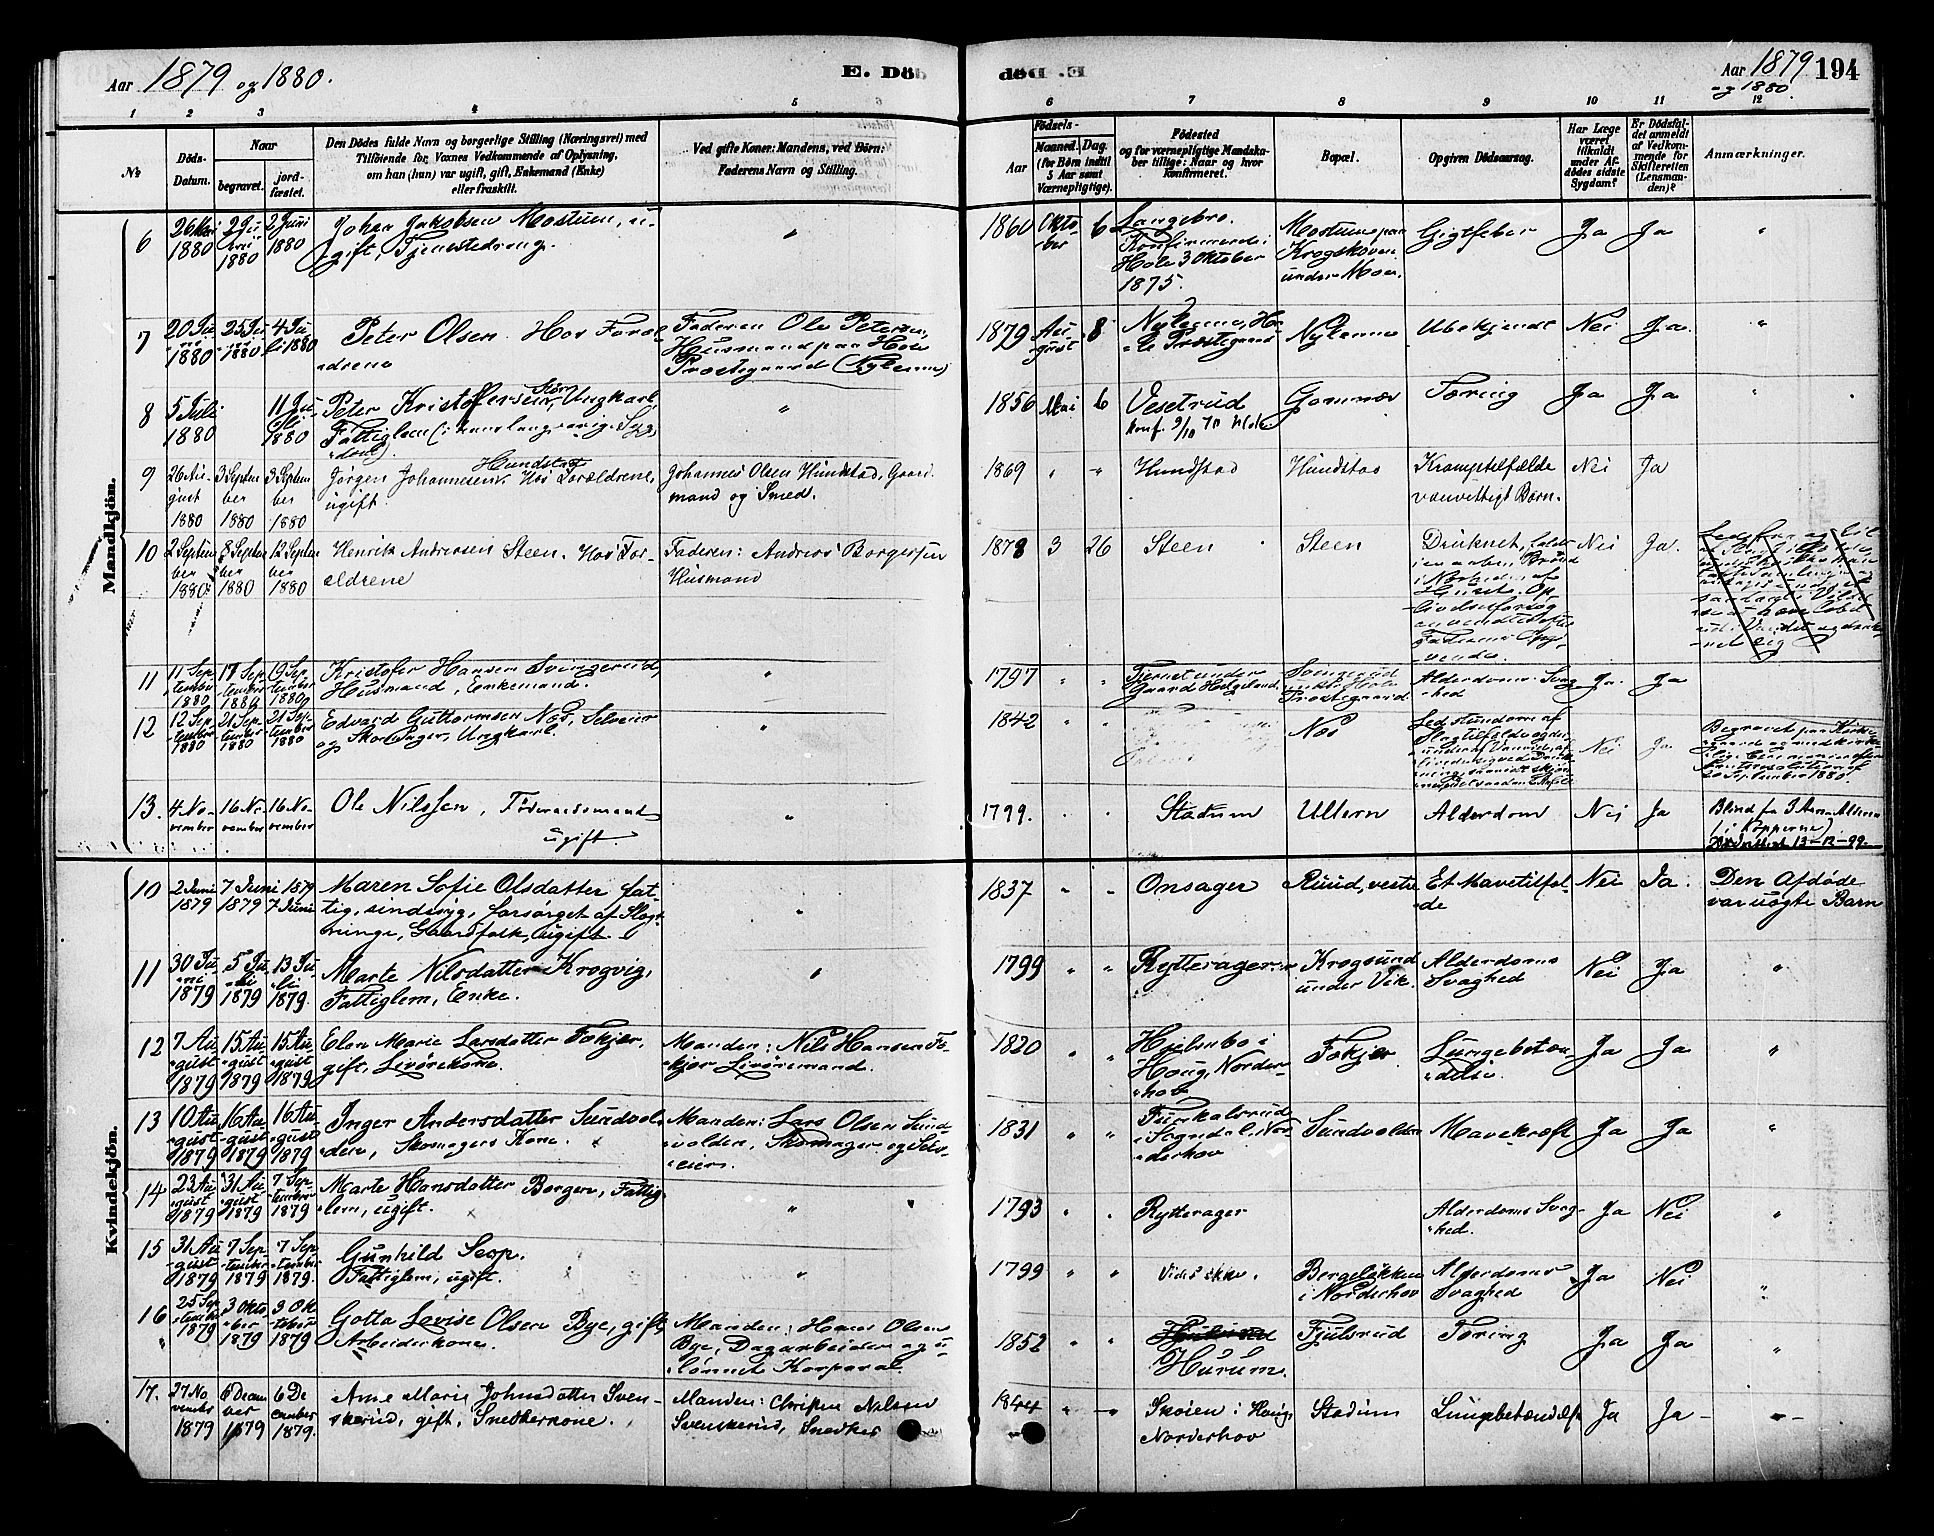 Aar 1879 og 1880.
E. Død
1 2 3 4 5 6
№
Döds-Datum.
Naar
begravet.
jord-fæstet.
Den Dödes fulde Navn og borgerlige Stilling (Næringsvei) med
Tilföiende for Voxnes Vedkommende af Oplysning,
om han (hun) var ugift, gift, Enkemand (Enke)
eller fraskilt.
Ved gifte Koner: Mandens, ved Börn:
Faderens Navn og Stilling.
Mandkjön.
6 26 Mai 1880 2 Juni 1880 2 Juni 1880
Johan Jakobsen Mostuen, u-
gift, Tjenestedreng.
"
7 20 Juni 1880 25 Juni 1880 4 Juli 1880
Peter Olsen. Hos Foræl-
drene
Faderen Ole Petersen,
Husmand paa Hole
Præstegaard (Nylenna)
8 5 Juli 1880 11 Juli 1880
Peter Kristofersen Ungkarl
Fattiglem
"
9 26 August 1880 3 September 1880 3 September 1880
Jørgen Johannesen Hundstad. Hos Forældrene,
ugift.
Johannes Olsen Hundstad, Gaard
mand og Smed.
10 2 September 1880 8 September 1880 12 September 1880
Henrik Andreasen Steen. Hos For-
ældrene
Faderen: Andreas Borgersen
Husmand
11 11 September 1880 17 September 1880 19 September 1880
Kristofer Hansen Svingerud,
Husmand, Enkemand.
"
12 12 September 1880 21 September 1880 21 September 1880
Edvard Guttormsen Næs, Selveier
og Skomager, Ungkarl.
"
13. 4 November 16 November 16 November
Ole Nilssen, Föderaadsmand
ugift.
"
Kvindekjön.
10 2 Juni 1879 7 Juni 1879 1879 7 Juni
Maren Sofie Olsdatter fat-
tig, sindssyg, forsørget af Slægt
ninge, Gaardfolk, ugift.
"
11 30 Juni 1879 5 Juli 1879 13 Juli 1879.
Marte Nilsdatter Krogvig,
Fattiglem, Enke.
"
12 7 August 1879 15 August 1879 15 August 1879
Elen Marie Larsdatter Fokjær,
gift, Livørekone.
Manden: Nils Hansen Fo-
kjær Livøremand.
13 10 August 1879 16 August 1879 16 August 1879
Inger Andersdatter Sundvol-
den, Skomagers Kone.
Manden: Lars Olsen Sund-
volden, Skomager og Selv-
eier.
14 23 August 1879 31 August 1879 7 September 1879
Marte Hansdatter Borgen, Fattig-
lem, ugift.
"
15 31 August 1879 7 September 1879 7 September 1879.
Gunhild
Fattiglem, ugift.
"
16 25 September 1879 3 Oktober 1879 3 Oktober 1879
Gotta Lovise Olsen Bye, gift,
Arbeiderkone.
Manden: Hans Olsen
Bye, Dagarbeider og u-
lønnet Korporal.
17. 27 November 1879 6 December 1879 6 December 1879.
Anne Marie Johnsdatter Sven-
skerud, gift, Snedkerkone.
Manden: Christian Nilssen
Svenskerud, Snedker
E. Død
Aar 1879 og 1880.
194
6 7 8 9 10 11 12
Födsels-
Aar
Maaned. Dag.
(for Börn indtil
5 Aar samt
Værnepligtige).
Födested
og for værnepligtige Mandska-
ber tillige: Naar og hvor
konfirmeret.
Bopæl.
Opgiven Dödsaarsag.
Har Læge
været
tilkaldt
under Af-
dödes sidste
Sygdom?
Er Dödsfal-
det anmeldt
af Vedkom-
mende for
Skifteretten
(Lensman-
den)?
Anmærkninger.
1860 Oktober 6 Langebro.
Konfirmeret i
Hole 3 Oktober
1875.
Mostuen paa
Krogskoven
under Moe.
Gigtfeber Ja Ja "
1879 August 8 Nylenna, Ho-
le Præstegaard
Nylenna Ubekjendt Nei Ja. "
1856 Mai 6 Vesetrud
konf. 9/10 70 Hole.
Gomnæs Tæring Ja Ja "
1869 " " Hundstad Hundstad Krampetilfælde
vanvittigt Barn.
Nei Ja
1878 3 26 Steen Steen Druknet,
Nei Ja.
1797 " " Gaard Helgeland.
Svingerud
under Hole
Præstegaard
Alderdoms Svag-
hed
Ja. Ja
1842 " " Næs
Nei Ja.
Begravet paa Kirke-
gaard
20 September 1880.
1799. " " Stadum Ullern Alderdom Nei Ja
Blind fra 3 Aars Alderen
(i Kopperne)
13-12-99.
1837 " " Onsager Ruud, vestre Et Mavetilfæl-
de
Nei Ja.
Den Afdøde
var uægte Barn
1799 " " Rytterageren Krogsund
under Vik.
Alderdoms
Svaghed
Nei Ja "
1820 " " Hjelmbo i
Houg, Norder-
hov
Fokjær Lungebetæn-
delse
Ja Ja "
1831 " "
i Sogndal, Nor-
derhov
Sundvolden Mavekræft Ja Ja "
1793 " " Rytterager Alderdoms Svag-
hed.
Ja Nei "
1799 " " Bergeløkken
i Norderhov
Alderdoms
Svaghed
Ja Nei "
1852 " " Hurum.
Fjulsrud Tæring Ja Ja "
1844 " " Skoien i Houg,
Norderhov
Stadum Lungebetændelse Ja Ja "